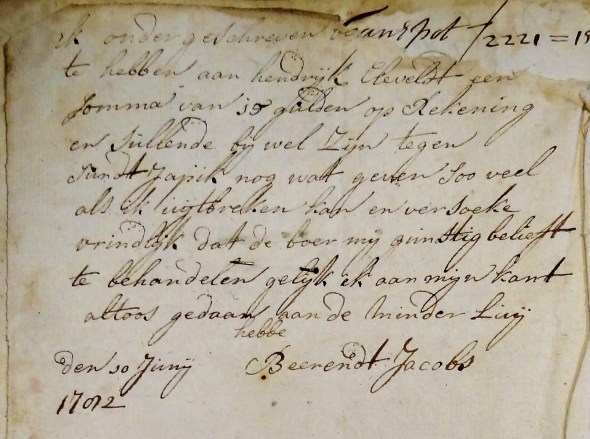 ik ondergeschreven be
van Spot / 2221 = 15
te hebben aan hendrijk Cleveldt een
Somma van 15 gulden op Rekening
en Sullende bij wel Zijn tegen
Sundt Japik nog wat geven Soo veel
als ik uijtbreken kan en versoeke
vrindlijk dat de boer mij gunstig belieft
te behandelen gelijk ik aan mijn kant
altoos gedaan hebbe aan de minder Luij
den 10 Junij Beerendt Jacobs